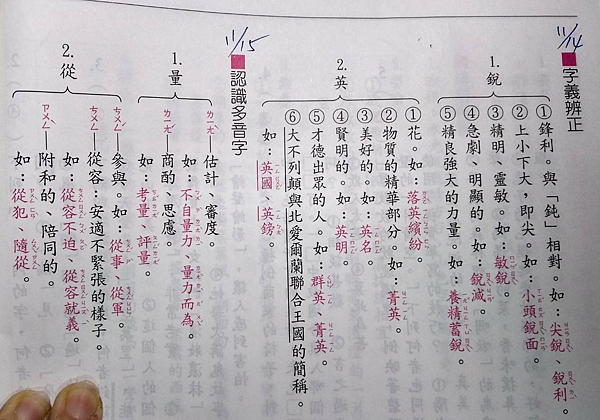 11/14
字義辨正
1. 銳
①鋒利。與「鈍」相對。如：尖銳、銳利。
②上小下大，即尖。如：小頭銳面。
③精明、靈敏。如：敏銳。
④急劇、明顯的。如：銳減。
⑤精良強大的力量。如：養精蓄銳。
2. 英
①花。如：落英繽紛。
②物質的精華部分。如：菁英。
③美好的。如：英名。
④賢明的。如：英明。
⑤才德出眾的人。如：群英、菁英。
⑥大不列顛與北愛爾蘭聯合王國的簡稱。
如：英國、英鎊。
11/15
認識多音字
1. 量
ㄌㄧㄤˋ 估計、審度。
如：不自量力、量力而為。
ㄌㄧㄤˊ 商酌、思慮。
如：考量、評量。
2. 從
ㄘㄨㄥˊ 參與。如：從事、從軍。
ㄘㄨㄥ 從容：安適不緊張的樣子。
如：從容不迫、從容就義。
ㄗㄨㄥˋ 附和的、陪同的。
如：從犯、隨從。